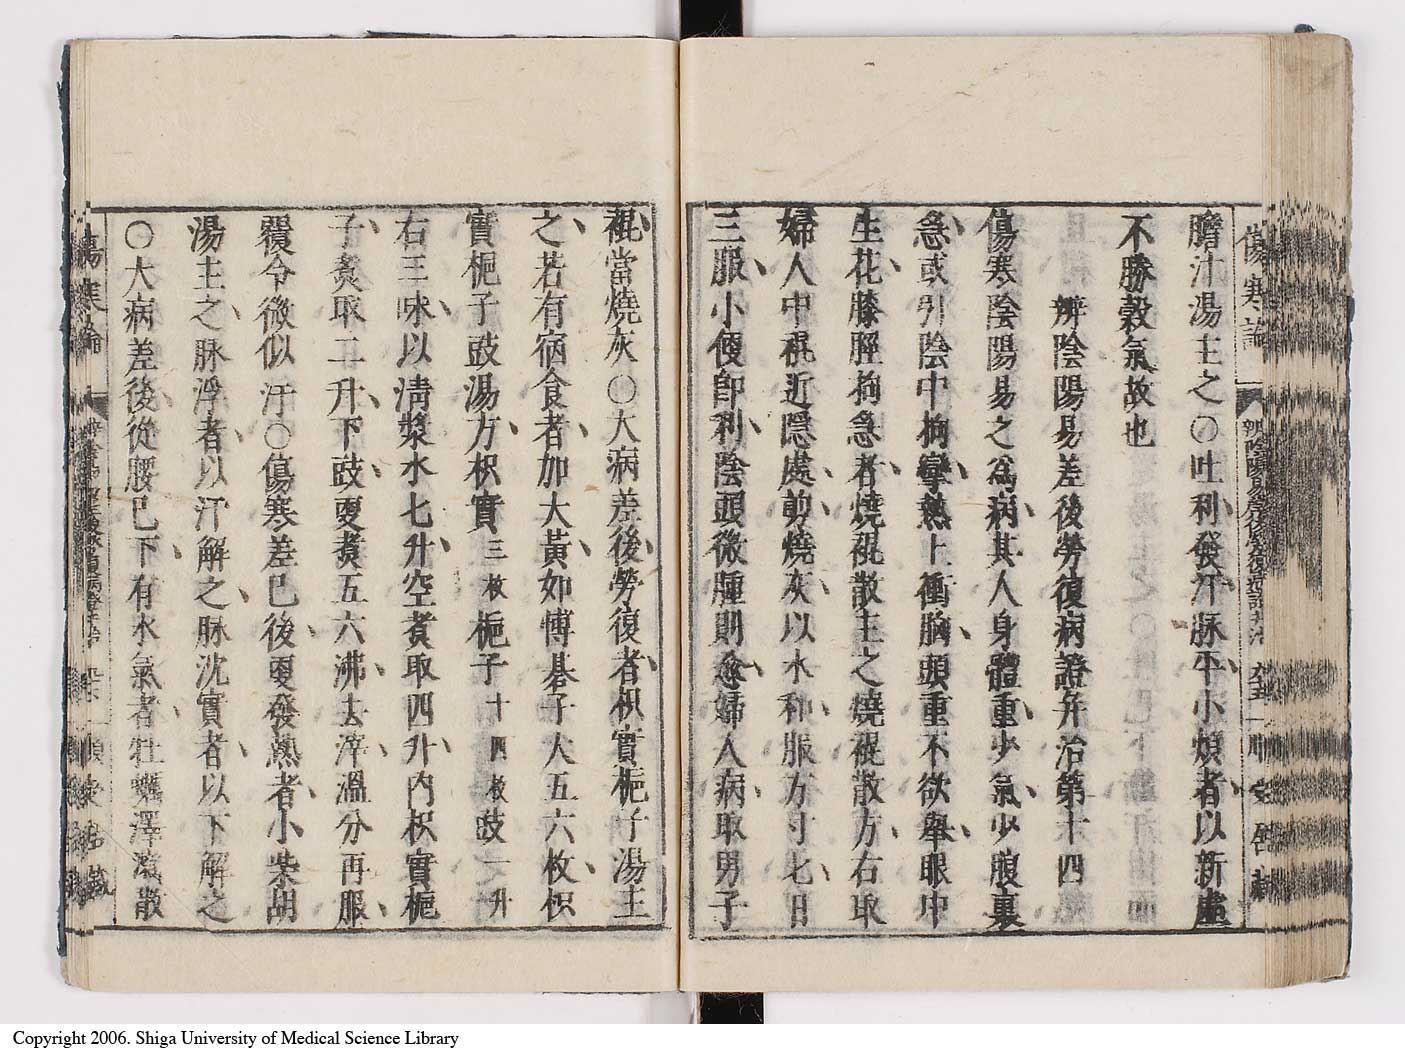 傷寒論
辨陰陽易差後勞復病證并治
膽汁湯主之〇吐利發汗脉平小煩者以新虛
不勝穀氣故也
辨陰陽易差後勞復病證并治第十四
傷寒陰陽易之爲病其人身體重少氣少腹裏
急或引陰中拘攣熱上衝胸頭重不欲舉眼中
生花膝脛拘急者燒裩散主之燒裩散方右取
婦人中裩近隱處剪燒灰以水和服方寸匕日
三服小便即利陰頭微腫則愈婦人病取男子
裩當燒灰〇大病差後勞復者枳實梔子湯主
之若有宿食者加大黃如博碁子大五六枚枳
實梔子豉湯方枳實三枚梔子十四枚豉一升
右三味以清漿水七升空煮取四升內枳實梔
子煮取二升下豉更煮五六沸去滓溫分再服
覆令微似汗〇傷寒差已後更發熱者小柴胡
湯主之脉浮者以汗解之脉沈實者以下解之
〇大病差後從腰已下有水氣者牡蠣澤瀉散
傷寒論
Copyright 2006. Shiga University of Medical Science Library